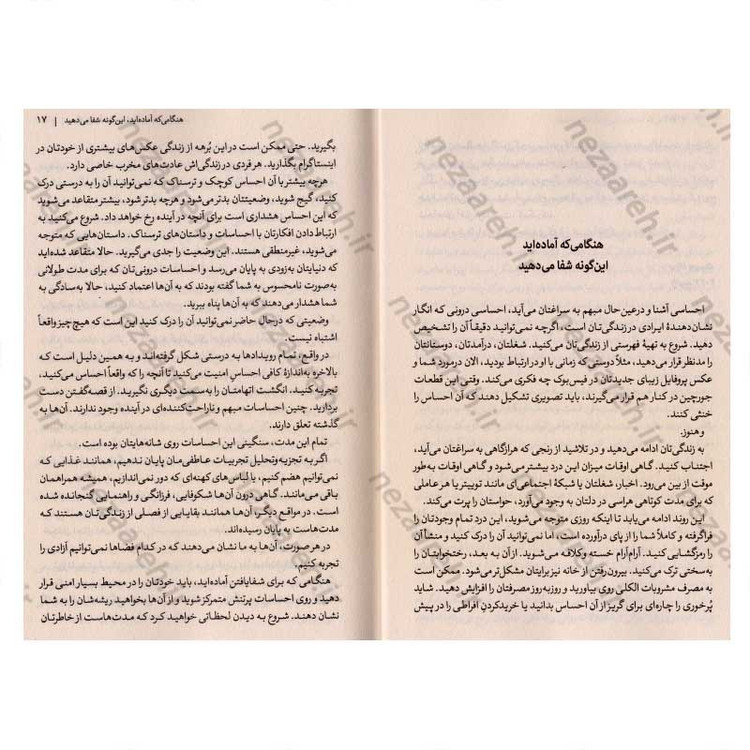 هنگامی‌که آماده‌اید
این‌گونه شفا می‌دهید
احساسی آشنا و درعین‌حال مبهم به سراغتان می‌آید، احساسی درونی که انگار
نشان‌دهندهٔ ایرادی در زندگی‌تان است، اگرچه نمی‌توانید دقیقاً آن را تشخیص
دهید. شروع به تهیهٔ فهرستی از زندگی‌تان می‌کنید. شغلتان، درآمدتان، دوستانتان
را مدنظر قرار می‌دهید، مثلاً دوستی که زمانی با او در ارتباط بودید، الان درمورد شما و
عکس پروفایل زیبای جدیدتان در فیس‌بوک چه فکری می‌کند. وقتی این قطعات
جورچین در کنار هم قرار می‌گیرند، باید تصویری تشکیل دهند که آن احساس را
خنثی کنند.
و هنوز.
به زندگی‌تان ادامه می‌دهید و در تلاشید از رنجی که هرازگاهی به سراغتان می‌آید،
اجتناب کنید. گاهی اوقات میزان این درد بیشتر می‌شود و گاهی اوقات به‌طور
موقت از بین می‌رود. اخبار، شغلتان یا شبکهٔ اجتماعی‌ای مانند توییتر یا هر عاملی
که برای مدت کوتاهی هراسی در دلتان به وجود می‌آورد، حواستان را پرت می‌کند.
این روند ادامه می‌یابد تا اینکه روزی متوجه می‌شوید، این درد تمام وجودتان را
فراگرفته و کاملاً شما را از پای درآورده است، اما نمی‌توانید آن را درک کنید و منشأ آن
را رمزگشایی کنید. آرام‌آرام خسته و کلافه می‌شوید. از آن به بعد، رختخوابتان را
به‌سختی ترک می‌کنید. بیرون‌رفتن از خانه نیز برایتان مشکل‌تر می‌شود. ممکن است
به مصرف مشروبات الکلی روی بیاورید و روزبه‌روز مصرفتان را افزایش دهید. شاید
پُرخوری را چاره‌ای برای گریز از آن احساس بدانید یا خریدکردنِ افراطی را در پیش
هنگامی‌که آماده‌اید، این‌گونه شفا می‌دهید | ۱۷
بگیرید. حتی ممکن است در این بُرهه از زندگی عکس‌های بیشتری از خودتان در
اینستاگرام بگذارید. هر فردی در زندگی‌اش عادت‌های مخرب خاصی دارد.
هرچه بیشتر با آن احساس کوچک و ترسناک که نمی‌توانید آن را به درستی درک
کنید، گیج شوید، وضعیتتان بدتر می‌شود و هرچه بدتر شود، بیشتر متقاعد می‌شوید
که این احساس هشداری است برای آنچه در آینده رخ خواهد داد. شروع می‌کنید به
ارتباط‌دادن افکارتان با احساسات و داستان‌های ترسناک. داستان‌هایی که متوجه
می‌شوید، غیرمنطقی هستند. این وضعیت را جدی می‌گیرید. حالا متقاعد شده‌اید
که دنیایتان به‌زودی به پایان می‌رسد و احساسات درونی‌تان که برای مدت طولانی
به‌صورت نامحسوس به شما گفته بودند که به آن‌ها اعتماد کنید، حالا به‌سادگی به
شما هشدار می‌دهند که به آن‌ها پناه ببرید.
وضعیتی که درحال حاضر نمی‌توانید آن را درک کنید این است که هیچ چیز واقعاً
اشتباه نیست.
در واقع، تمام رویدادها به درستی شکل گرفته‌اند و به همین دلیل است که
بالاخره به‌اندازهٔ کافی احساسِ امنیت می‌کنید تا آنچه را که واقعاً احساس می‌کنید،
تجربه کنید. انگشت اتهامتان را به‌سمت دیگری نگیرید. از قصه‌گفتن دست
بردارید. چنین احساسات مبهم و ناراحت‌کننده‌ای در آینده وجود ندارند. آن‌ها به
گذشته تعلق دارند.
تمام این مدت، سنگینی این احساسات روی شانه‌هایتان بوده است.
اگر به تجزیه‌وتحلیل تجربیات عاطفی‌مان پایان ندهیم، همانند غذایی که
نمی‌توانیم هضم کنیم، یا لباس‌های کهنه‌ای که دور نمی‌اندازیم، همیشه همراهمان
باقی می‌مانند. گاهی درون آن‌ها شکوفایی، فرزانگی و راهنمایی گنجانده شده
است. در مواقع دیگر، آن‌ها همانند بقایایی از فصلی از زندگی‌تان هستند که
مدت‌هاست به پایان رسیده‌اند.
در هر صورت، آن‌ها به ما نشان می‌دهند که در کدام فضاها نمی‌توانیم آزادی را
تجربه کنیم.
هنگامی که برای شفایافتن آماده‌اید، باید خودتان را در محیط بسیار امنی قرار
دهید و روی احساسات پرتنش متمرکز شوید و از آن‌ها بخواهید ریشه‌شان را به شما
نشان دهند. شروع به دیدن لحظاتی خواهید کرد که مدت‌هاست از خاطرتان
nezaareh.ir